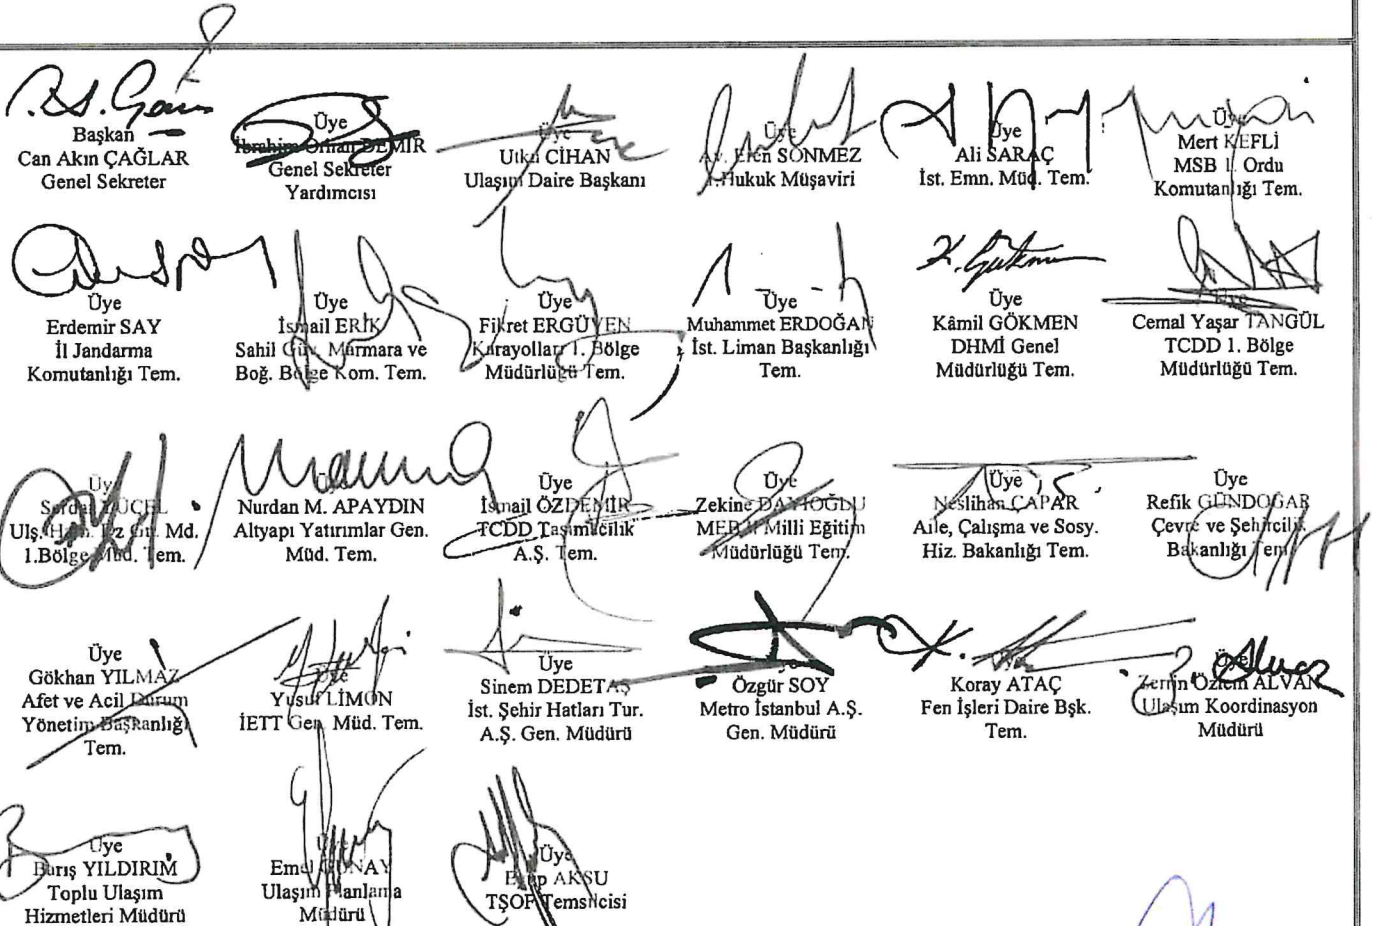 Başkan
Can Akın ÇAĞLAR
Genel Sekreter
Üye
İbrahim Orhan DEMİR
Genel Sekreter
Yardımcısı
Üye
Utku CİHAN
Ulaşım Daire Başkanı
Üye
Av. Eren SÖNMEZ
1.Hukuk Müşaviri
Üye
Ali SARAÇ
İst. Emn. Müd. Tem.
Üye
Mert KEFLİ
MSB 1. Ordu
Komutanlığı Tem.
Üye
Erdemir SAY
İl Jandarma
Komutanlığı Tem.
Üye
İsmail ERİK
Sahil Güv. Marmara ve
Boğ. Bölge Kom. Tem.
Üye
Fikret ERGÜVEN
Karayolları 1. Bölge
Müdürlüğü Tem.
Üye
Muhammet ERDOĞAN
İst. Liman Başkanlığı
Tem.
K. Gökmen
Üye
Kâmil GÖKMEN
DHMİ Genel
Müdürlüğü Tem.
Üye
Cemal Yaşar TANGÜL
TCDD 1. Bölge
Müdürlüğü Tem.
Üye
Serdar YÜCEL
Ulş. Md.
1.Bölge Müd. Tem.
Nurdan M. APAYDIN
Altyapı Yatırımlar Gen.
Müd. Tem.
Üye
İsmail ÖZDEMİR
TCDD Taşımacılık
A.Ş. Tem.
Üye
Zekine DAYIOĞLU
MEB İl Milli Eğitim
Müdürlüğü Tem.
Üye
Neslihan ÇAPAR
Aile, Çalışma ve Sosy.
Hiz. Bakanlığı Tem.
Üye
Refik GÜNDOĞAR
Çevre ve Şehircilik
Bakanlığı Tem.
Üye
Gökhan YILMAZ
Afet ve Acil Durum
Yönetim Başkanlığı
Tem.
Üye
Yusuf LİMON
İETT Gen. Müd. Tem.
Üye
Sinem DEDETAŞ
İst. Şehir Hatları Tur.
A.Ş. Gen. Müdürü
Üye
Özgür SOY
Metro İstanbul A.Ş.
Gen. Müdürü
Üye
Koray ATAÇ
Fen İşleri Daire Bşk.
Tem.
Üye
Zerrin Özlem ALVAN
Ulaşım Koordinasyon
Müdürü
Üye
Barış YILDIRIM
Toplu Ulaşım
Hizmetleri Müdürü
Üye
Emel GÜNAY
Ulaşım Planlama
Müdürü
Üye
Eyüp AKSU
TŞOF Temsilcisi